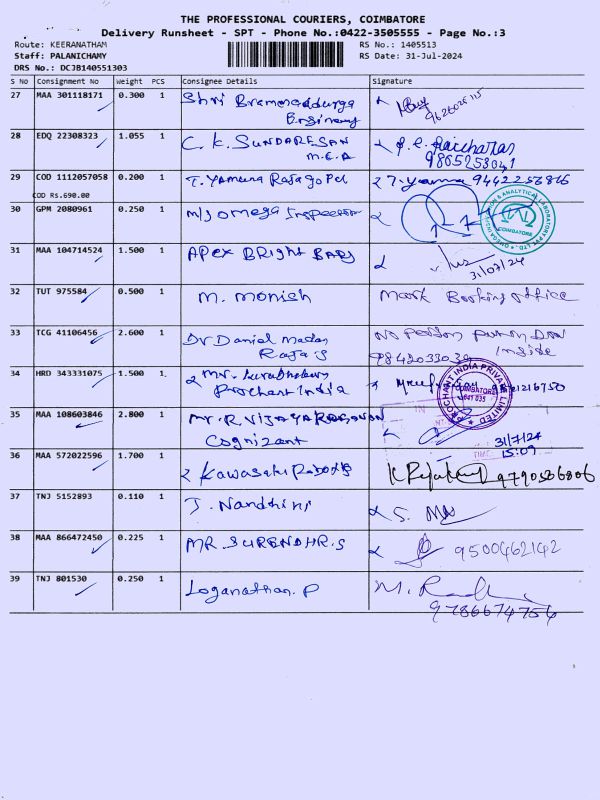 THE PROFESSIONAL COURIERS, COIMBATORE
Delivery Runsheet - SPT - Phone No.:0422-3505555 - Page No.:3
Route: KEERANATHAM
RS No.: 1405513
Staff: PALANICHAMY
RS Date: 31-Jul-2024
DRS No.: DCJB140551303
S No Consignment No Weight PCS Consignee Details Signature
27 MAA 301118171 0.300 1 Shri
28 EDQ 22308323 1.055 1 C. K. SUNDARESAN
M.C.A
9865258041
29 COD 1112057058 0.200 1 T. Yamuna Rajagopal T. Yamuna 9442256816
COD Rs.690.00
30 GPM 2080961 0.250 1 M/s Omega Inspection
OMEGA INSPECTION & ANALYTICAL LABORATORY PVT LTD
COIMBATORE
31 MAA 104714524 1.500 1 APex BRight BABY
31/07/24
32 TUT 975584 0.500 1 M. Monish Mark Booking office
33 TCG 41106456 2.600 1 Dr Daniel Madan No Person
Inside
34 HRD 343331075 1.500 1 Mr.
Prochant India
PROCHANT INDIA PRIVATE LIMITED
COIMBATORE
641 035
35 MAA 108603846 2.800 1 Mr. R. VIJAYARAGAVAN
Cognizant
31/7/24
15:09
36 MAA 572022596 1.700 1 Kawasaki Robotics
37 TNJ 5152893 0.110 1 J. Nandhini S.
38 MAA 866472450 0.225 1 MR. SURENDHR. S 9500462142
39 TNJ 801530 0.250 1 Loganathan. P M.
9786674756